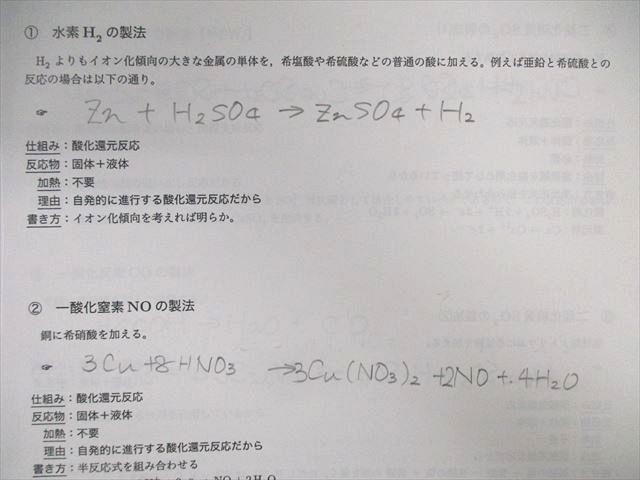 ① 水素 H₂ の製法
H₂ よりもイオン化傾向の大きな金属の単体を，希塩酸や希硫酸などの普通の酸に加える。例えば亜鉛と希硫酸との
反応の場合は以下の通り。
☞ Zn + H₂SO₄ → ZnSO₄ + H₂
仕組み：酸化還元反応
反応物：固体＋液体
加熱：不要
理由：自発的に進行する酸化還元反応だから
書き方：イオン化傾向を考えれば明らか。
② 一酸化窒素 NO の製法
銅に希硝酸を加える。
☞ 3Cu + 8HNO₃ → 3Cu(NO₃)₂ + 2NO + 4H₂O
仕組み：酸化還元反応
反応物：固体＋液体
加熱：不要
理由：自発的に進行する酸化還元反応だから
書き方：半反応式を組み合わせる